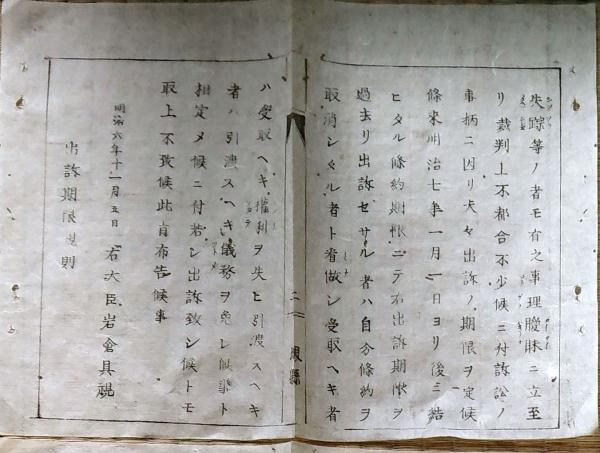 失踪等ノ者モ有之事理曖昧ニ立至
リ裁判上不都合不少候ニ付訴訟ノ
事柄ニ因リ夫々出訴ノ期限ヲ定候
條來明治七年一月一日ヨリ後ニ結
ヒタル條約期限ニテ右出訴期限ヲ
過去リ出訴セサル者ハ自分條約ヲ
取消シタル者ト看做シ受取ヘキ者
二
縣
ハ受取ヘキ權利ヲ失ヒ引渡スヘキ
者ハ引渡スヘキ義務ヲ免レ候事ト
相定メ候ニ付若シ出訴致シ候トモ
取上不致候此旨布告候事
明治六年十一月五日 右大臣岩倉具視
出訴期限規則